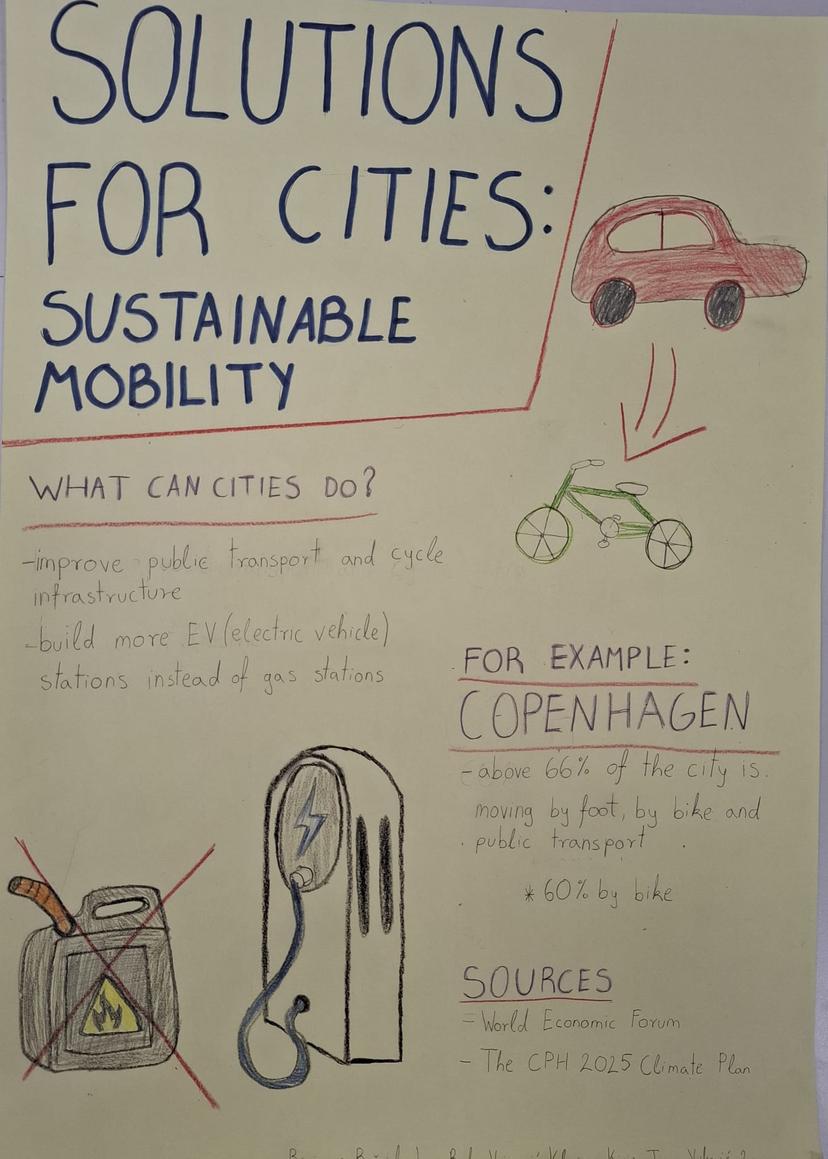 SOLUTIONS
FOR CITIES:
SUSTAINABLE
MOBILITY
WHAT CAN CITIES DO?
-improve public transport and cycle
infrastructure
-build more EV (electric vehicle)
stations instead of gas stations
FOR EXAMPLE:
COPENHAGEN
-above 66% of the city is
moving by foot, by bike and
public transport
* 60% by bike
SOURCES
- World Economic Forum
- The CPH 2025 Climate Plan